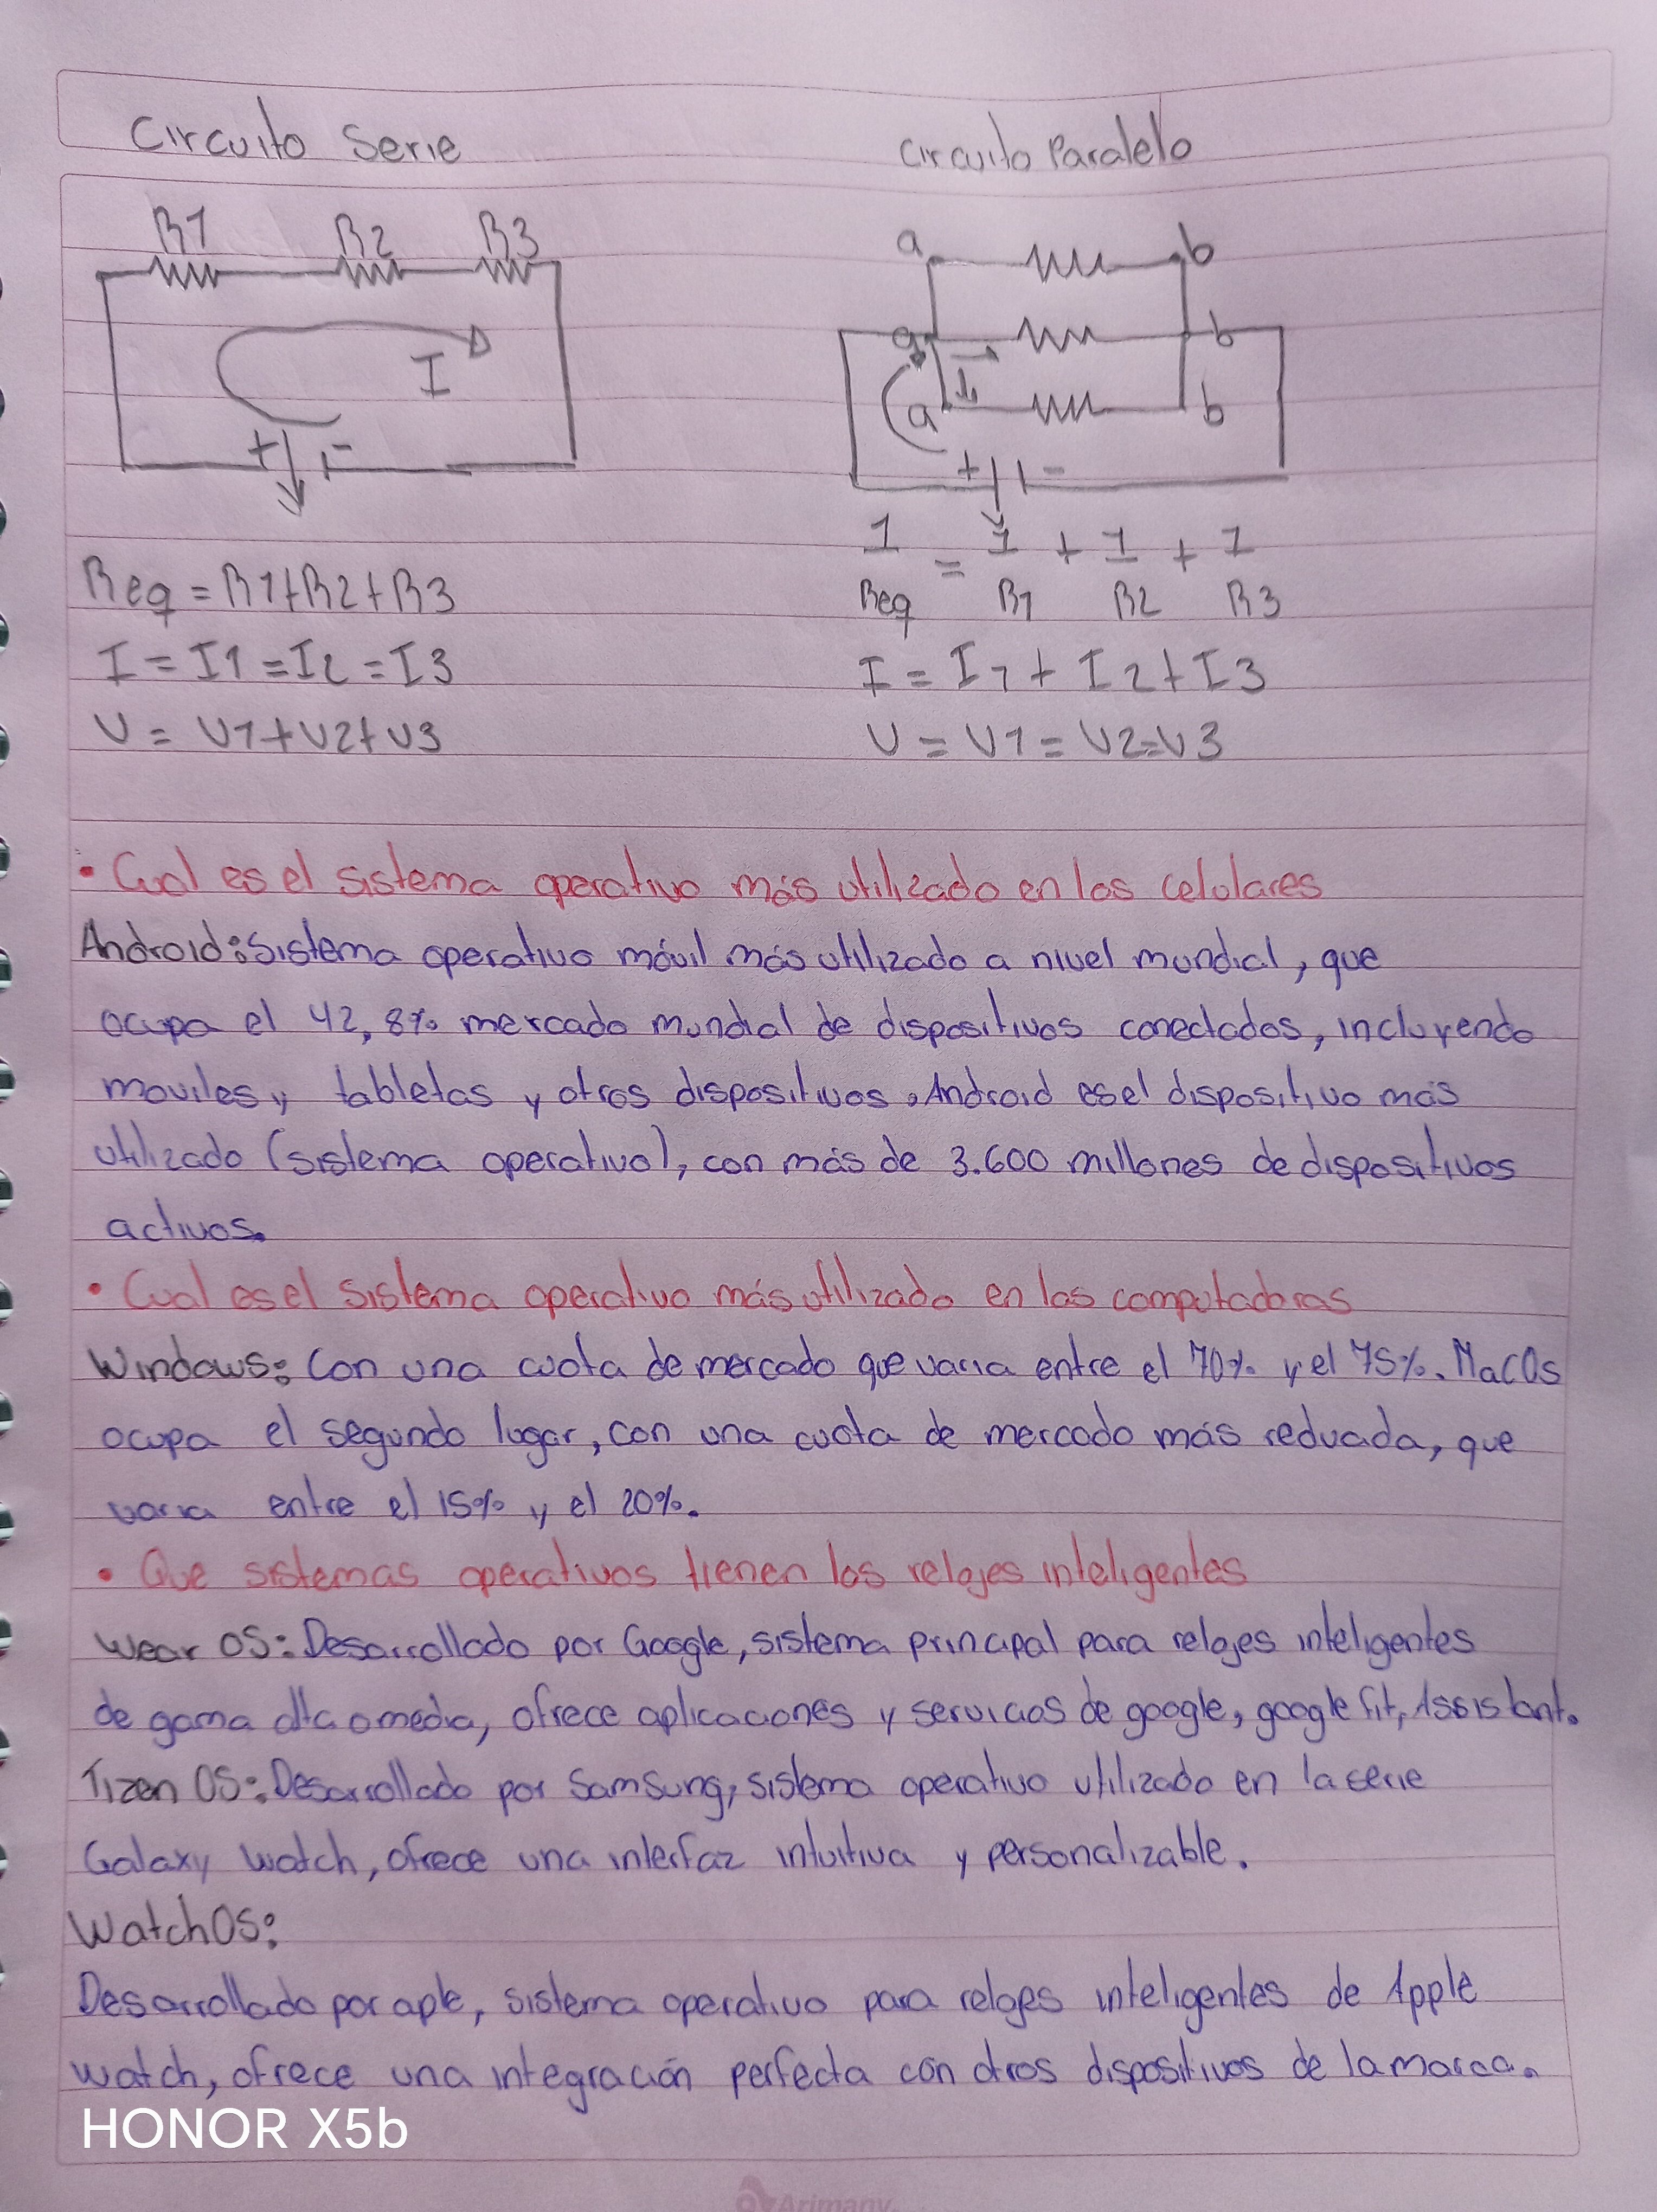 Circuito Serie
Circuito Paralelo
R1 R2 R3
I
+ -
a b
a b
I
I1
a b
+ -
Req = R1+R2+R3
I = I1 = I2 = I3
V = V1+V2+V3
1 = 1 + 1 + 1
Req R1 R2 R3
I = I1 + I2 + I3
V = V1 = V2=V3
• Cual es el sistema operativo más utilizado en los celulares
Android: Sistema operativo móvil más utilizado a nivel mundial, que
ocupa el 42,8% mercado mundial de dispositivos conectados, incluyendo
moviles, tabletas y otros dispositivos. Android es el dispositivo más
utilizado (sistema operativo), con más de 3.600 millones de dispositivos
activos.
• Cual es el sistema operativo más utilizado en las computadoras
Windows: Con una cuota de mercado que varia entre el 70% y el 75%. MacOs
ocupa el segundo lugar, con una cuota de mercado más reducida, que
varia entre el 15% y el 20%.
• Que sistemas operativos tienen los relojes inteligentes
Wear OS: Desarrollado por Google, sistema principal para relojes inteligentes
de gama alta o media, ofrece aplicaciones y servicios de google, google fit, Assistant.
Tizen OS: Desarrollado por Samsung, sistema operativo utilizado en la serie
Galaxy Watch, ofrece una interfaz intuitiva y personalizable.
WatchOS:
Desarrollado por aple, sistema operativo para relojes inteligentes de Apple
watch, ofrece una integración perfecta con otros dispositivos de la marca.
HONOR X5b
Arimany.